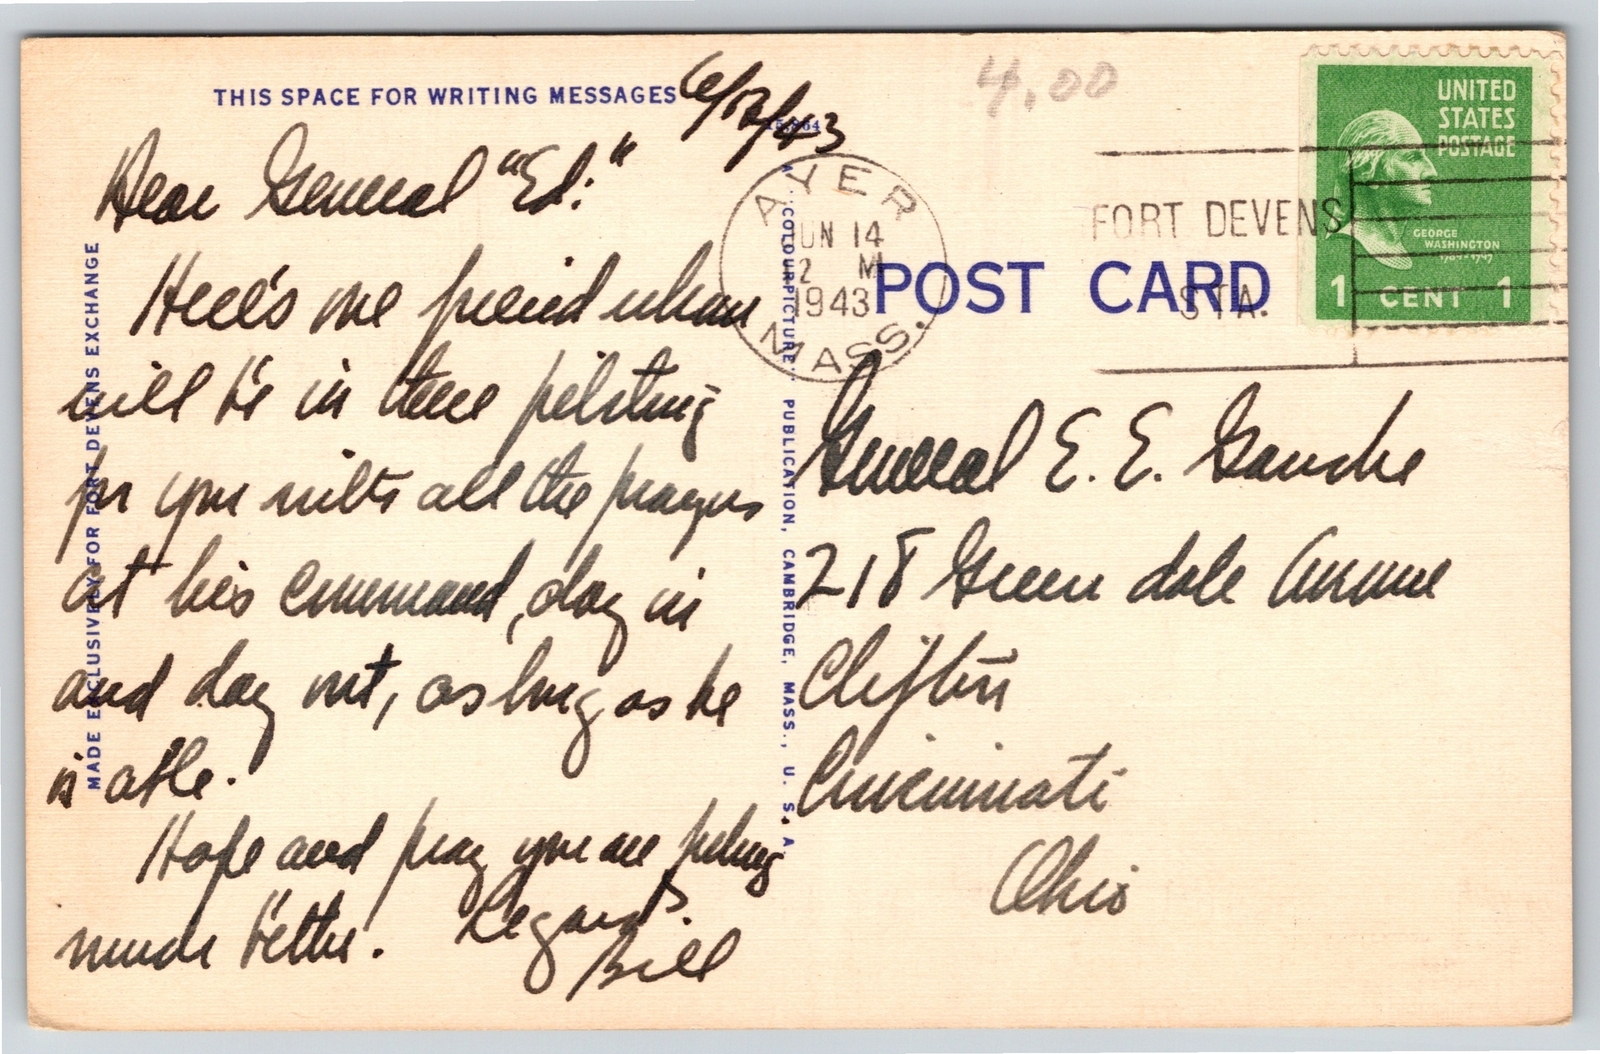 THIS SPACE FOR WRITING MESSAGES
6/12/43
Dear General "Ed:"
Here's one friend whom
will be in there pitching
for you with all the prayers
at his command, day in
and day out, as long as he
is able.
Hope and pray you are feeling
much better. Regards.
Bill
MADE EXCLUSIVELY FOR FORT DEVENS EXCHANGE
COLOURPICTURE PUBLICATION, CAMBRIDGE, MASS., U. S. A.
4.00
AYER
JUN 14
2 M
1943
MASS.
FORT DEVENS
STA.
POST CARD
UNITED
STATES
POSTAGE
GEORGE
WASHINGTON
1789-1797
1 CENT 1
General E. E.
218 Green dale Avenue
Clifton
Cincinnati
Ohio